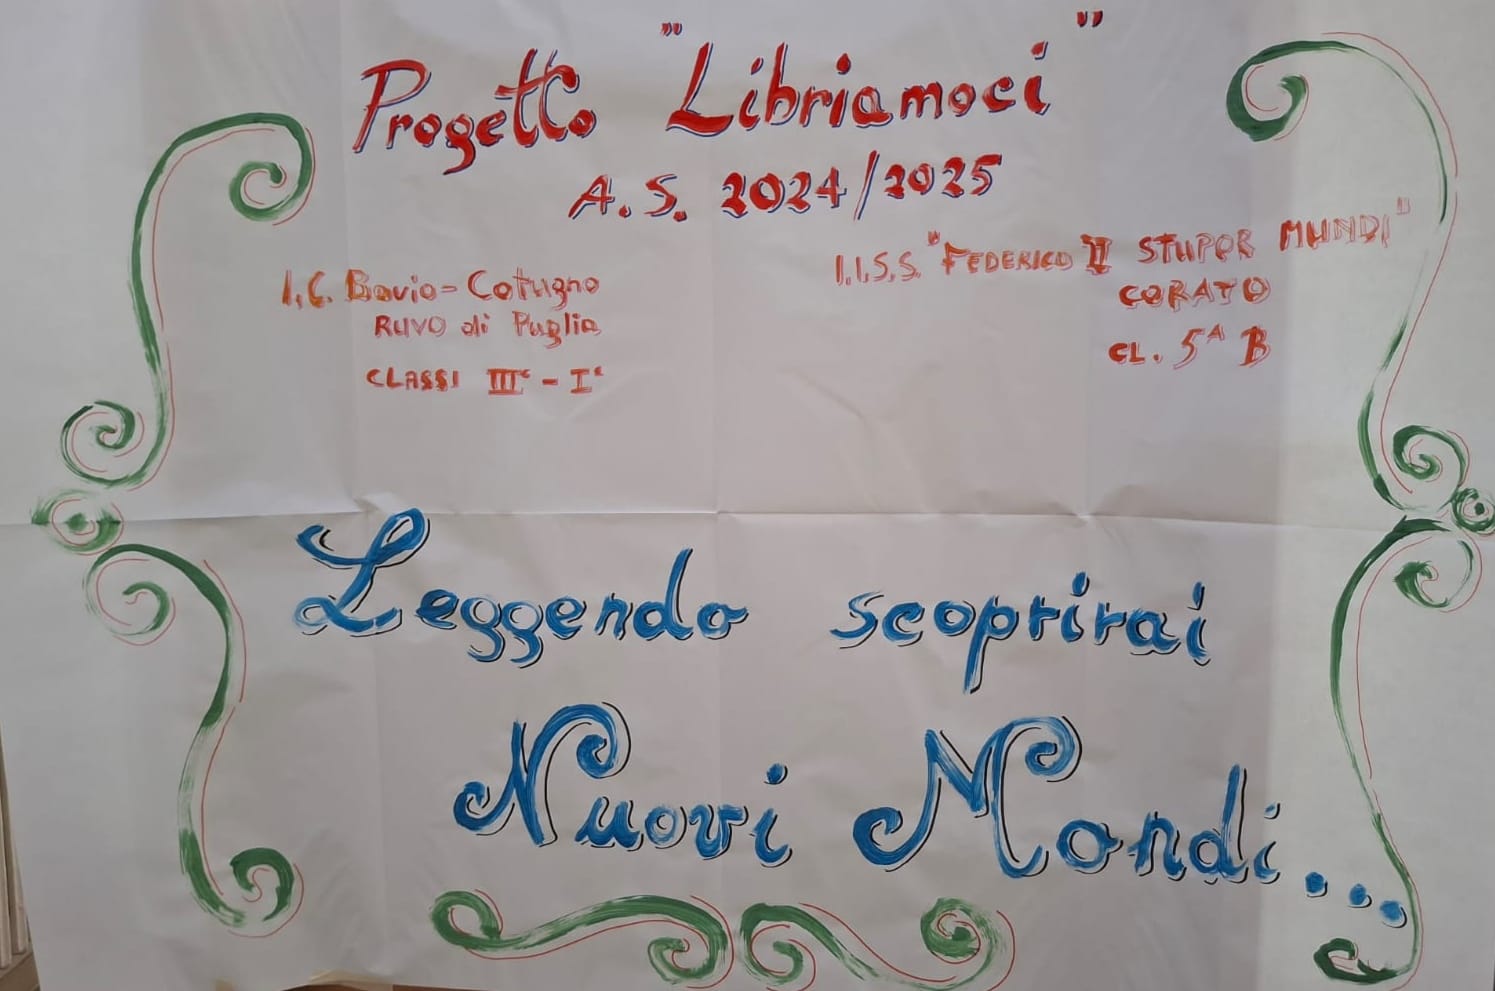 Progetto "Libriamoci"
A.S. 2024/2025
I.C. Bovio-Cotugno
RUVO di Puglia
CLASSI IIIᶜ - Iᶜ
I.I.S.S. "FEDERICO II STUPOR MUNDI"
CORATO
CL. 5ᴬ B
Leggendo scoprirai
Nuovi Mondi...